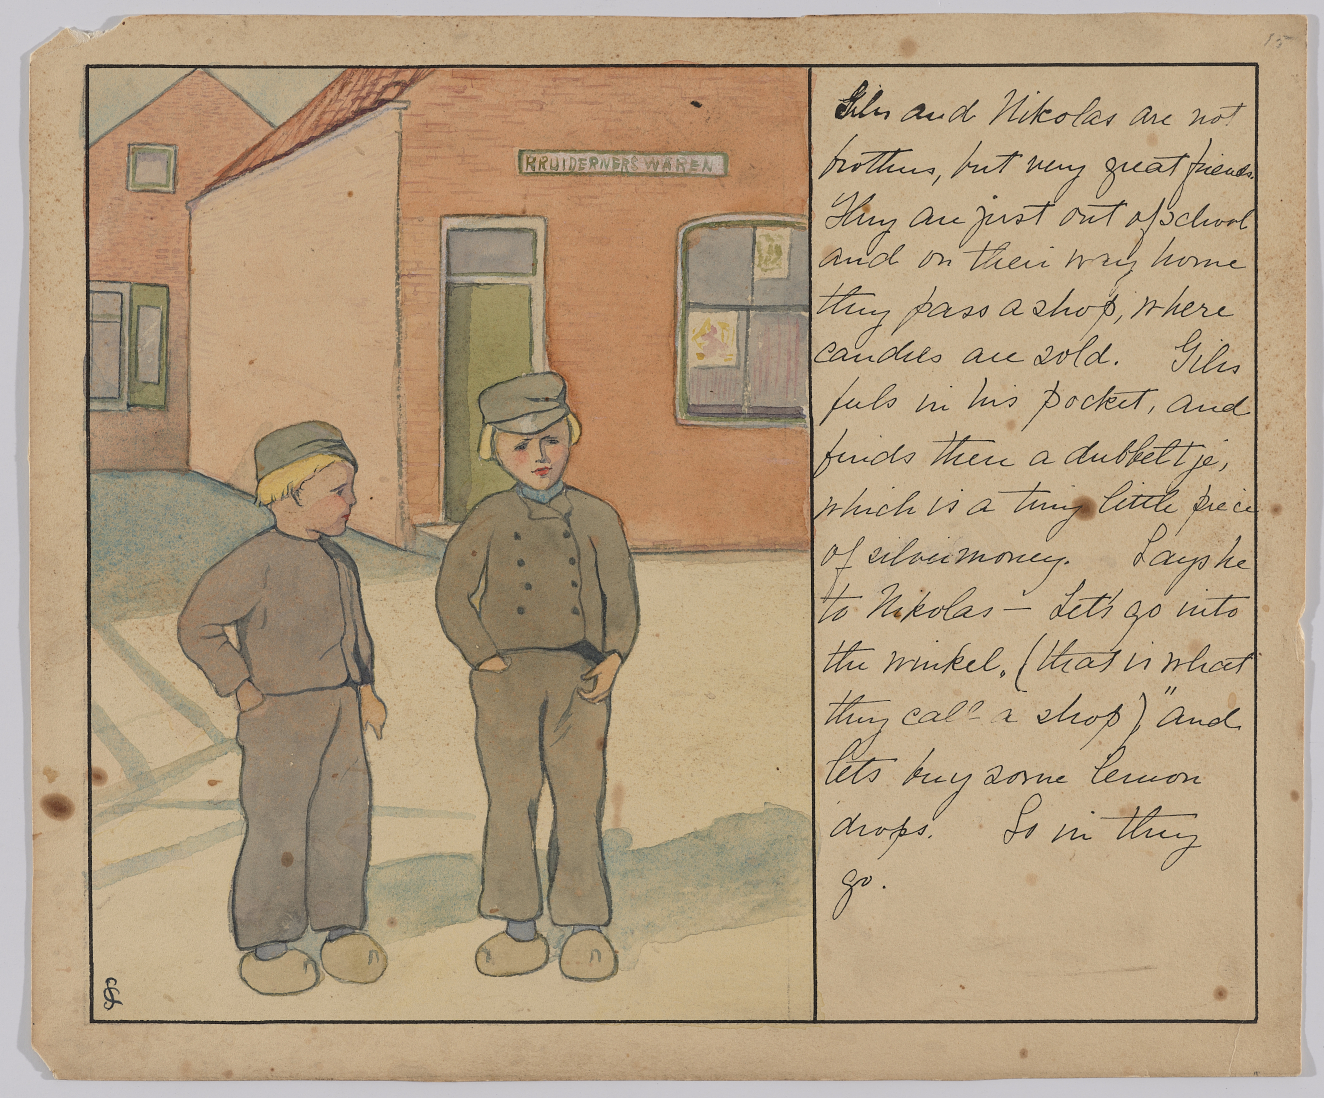 15
KRUIDERNERS WAREN
Giles and Nikolas are not
brothers, but very great friends.
They are just out of school
and on their way home
they pass a shop, where
candies are sold. Giles
feels in his pocket, and
finds there a dubbeltje,
which is a tiny little piece
of silver money. Says he
to Nikolas — Let's go into
the winkel. (that is what
they call a shop)," and
lets buy some lemon
drops. So in they
go.